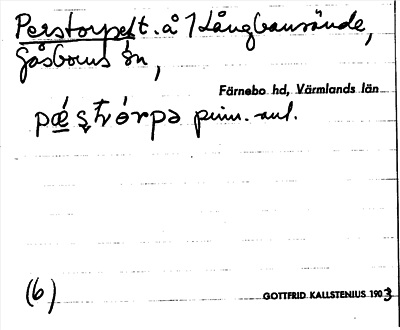 Perstorpet t. å 1 Långbansände,
Gåsborns sn,
Färnebo hd, Värmlands län
pǽʂt̄órpə pinn. anl.
(6)
GOTTFRID KALLSTENIUS 1903